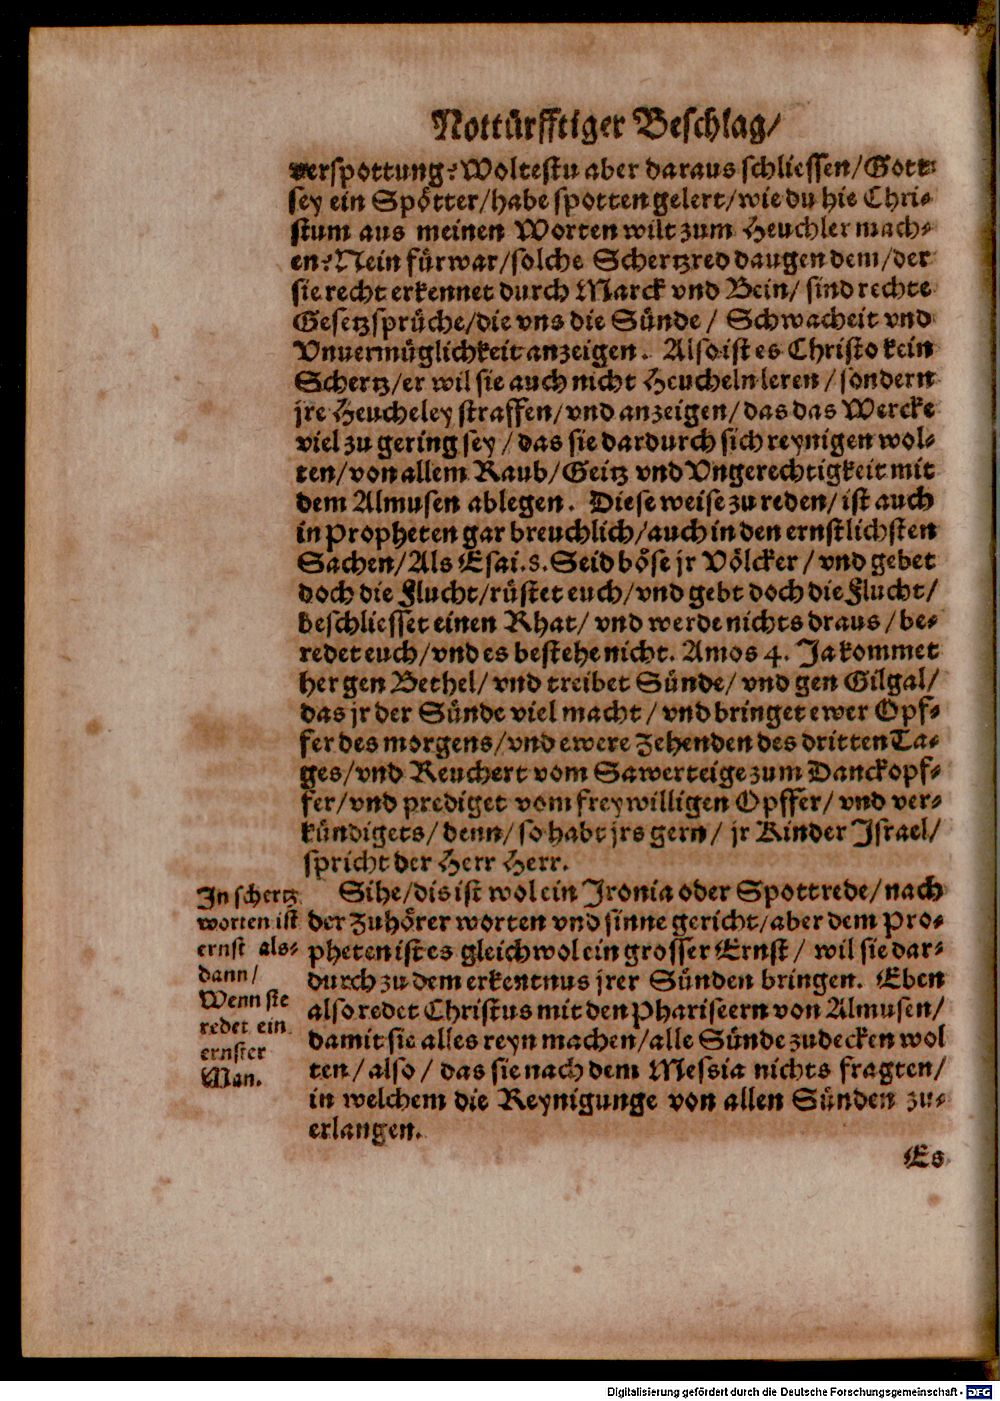 Nottürfftiger Beschlag/
verspottung? Woltestu aber daraus schliessen/Gott
sey ein Spötter/habe spotten gelert/wie du hie Chri-
stum aus meinen Worten wilt zum Heuchler mach-
en? Nein fürwar/solche Schertzred daugen dem/der
sie recht erkennet durch Marck vnd Bein/ sind rechte
Gesetzsprüche/die vns die Sünde / Schwacheit vnd
Vnuermüglichkeit anzeigen. Also ist es Christo kein
Schertz/er wil sie auch nicht Heucheln leren / sondern
jre Heucheley straffen/vnd anzeigen/das das Wercke
viel zu gering sey / das sie dardurch sich reynigen wol-
ten/von allem Raub/Geitz vnd Vngerechtigkeit mit
dem Almusen ablegen. Diese weise zu reden/ ist auch
in Propheten gar breuchlich/auch in den ernstlichsten
Sachen/Als Esai.8. Seid böse jr Völcker / vnd gebet
doch die Flucht/rüstet euch/vnd gebt doch die Flucht/
beschliesset einen Rhat/ vnd werde nichts draus / be-
redet euch/vnd es bestehe nicht. Amos 4. Ja kommet
her gen Bethel/ vnd treibet Sünde/ vnd gen Gilgal/
das jr der Sünde viel macht / vnd bringet ewer Opf-
fer des morgens/vnd ewere Zehenden des dritten Ta-
ges/vnd Reuchert vom Sawerteige zum Danckopf-
fer/vnd prediget vom freywilligen Opffer/ vnd ver-
kündigets/ denn/ so habt jrs gern/ jr Kinder Israel/
spricht der Herr Herr.
Sihe/dis ist wol ein Ironia oder Spottrede/nach
der Zuhörer worten vnd sinne gericht/aber dem Pro-
pheten ist es gleichwol ein grosser Ernst/ wil sie dar-
durch zu dem erkentnus jrer Sünden bringen. Eben
also redet Christus mit den Phariseern von Almusen/
damit sie alles reyn machen/alle Sünde zudecken wol
ten/ also / das sie nach dem Messia nichts fragten/
in welchem die Reynigunge von allen Sünden zu-
erlangen.
In schertz
worten ist
ernst als-
dann/
Wenn sie
redet ein
ernster
Man.
Es
Digitalisierung gefördert durch die Deutsche Forschungsgemeinschaft - DFG